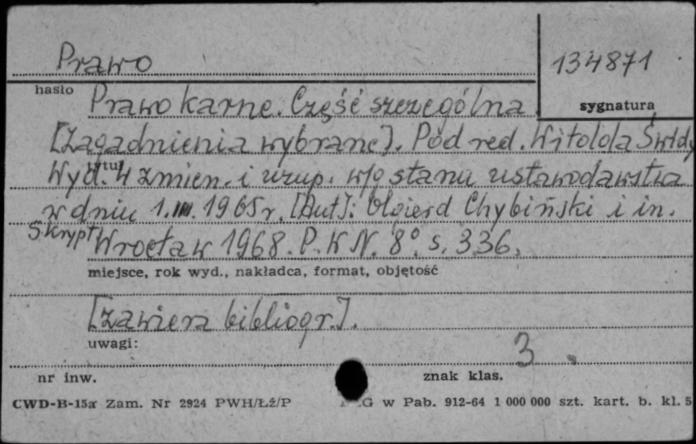 Prawo
134871
hasło
sygnatura
Prawo karne. Część szczególna
[Zagadnienia wybrane]. Pod red. Witolda Świdy
tytuł
Wyd. 4 zmien. i uzup. w/g stanu ustawodawstwa
w dniu 1.III.1965r. [Aut]: Olgierd Chybiński i in.
Skrypt Wrocław 1968. P.W.N. 8° s. 336.
miejsce, rok wyd., nakładca, format, objętość
[zawiera bibliogr.].
uwagi:
3
nr inw.
znak klas.
CWD-B-15a Zam. Nr 2924 PWH/Łź/P
G w Pab. 912-64 1 000 000 szt. kart. b. kl. 5